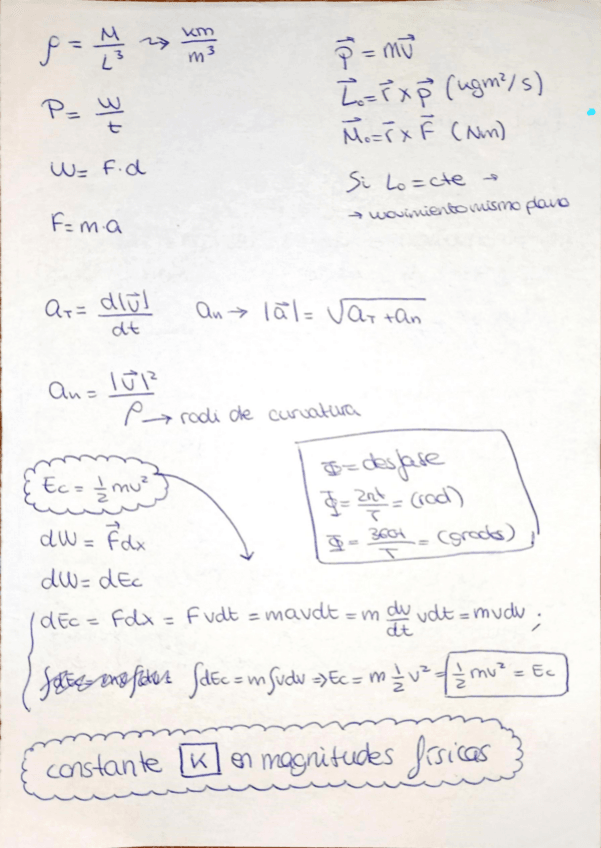 ρ = M/L³ ⇝ km/m³
P = W/t
W = F·d
F = m·a
p⃗ = mv⃗
L⃗₀ = r⃗ × p⃗ (kgm²/s)
M⃗₀ = r⃗ × F⃗ (Nm)
Si L₀ = cte →
→ movimiento mismo plano
a_T = d|v⃗|/dt   a_n → |a⃗| = √(a_T + a_n)
a_n = |v⃗|²/ρ → radi de curvatura
Ec = ½ mv²
dW = F⃗dx
dW = dEc
Φ = desfase
Φ = 2πt/T = (rad)
Φ = 360t/T = (grados)
dEc = Fdx = Fvdt = mavdt = m dv/dt vdt = mvdv ;
∫dEc = m∫vdv ⇒ Ec = m ½ v² = ½ mv² = Ec
constante K en magnitudes físicas